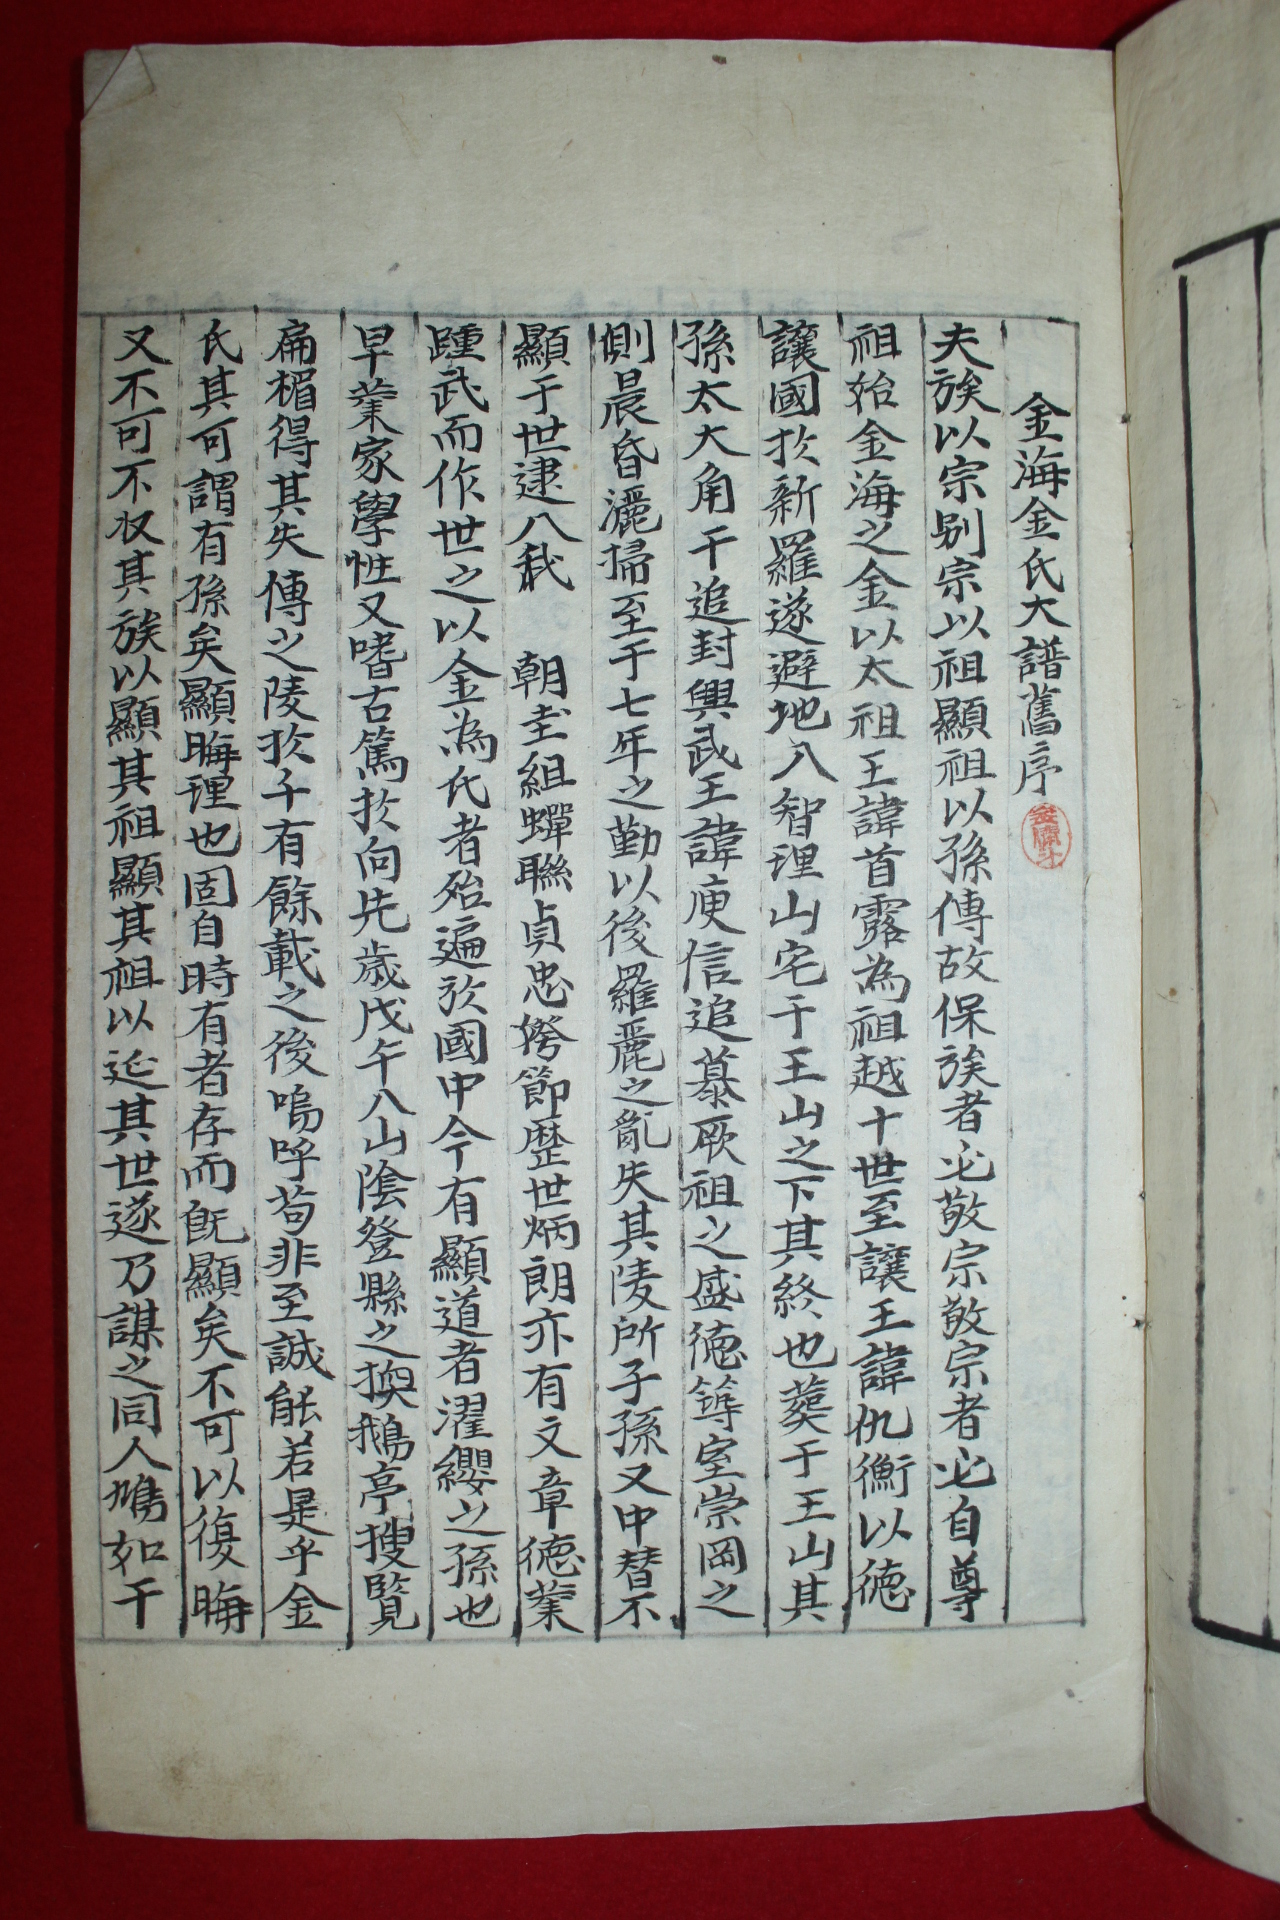 金海金氏大譜舊序
夫族以宗别宗以祖顯祖以孫傳故保族者必敬宗敬宗者必自尊
祖始金海之金以太祖王諱首露為祖越十世至讓王諱仇衡以德
讓國扵新羅遂避地入智理山宅于王山之下其終也葬于王山其
孫太大角干追封興武王諱庾信追慕厥祖之盛德築室崇岡之
側晨昏灑掃至于七年之勤以後羅麗之亂失其陵所子孫又中替不
顯于世逮入我 朝圭組蟬聯貞忠姱節歷世炳朗亦有文章德業
踵武而作世之以金為氏者殆遍扵國中今有顯道者濯纓之孫也
早業家學性又嗜古篤扵向先歲戊午入山陰登縣之換鵝亭搜覽
扁楣得其失傳之陵扵千有餘載之後嗚呼苟非至誠能若是乎金
氏其可謂有孫矣顯晦理也固自時有者存而旣顯矣不可以復晦
又不可不収其族以顯其祖顯其祖以延其世遂乃謀之同人鳩如干